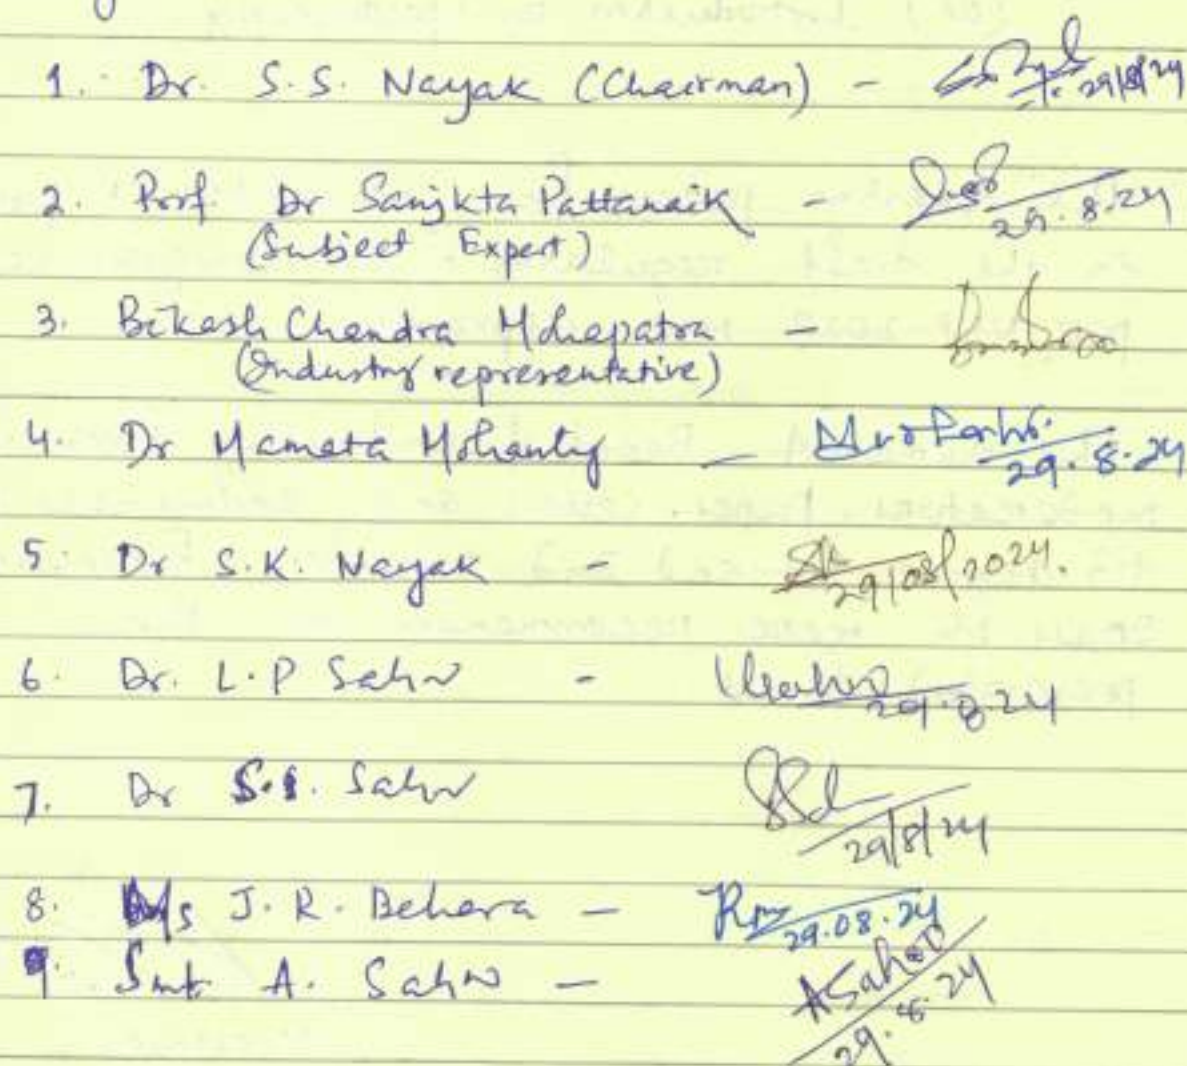 1. Dr. S.S. Nayak (Chairman) - 29/8/24
2. Prof. Dr Sanjkta Pattanaik - 29.8.24
(Subject Expert)
3. Bikash Chandra Mohapatra -
(Industry representative)
4. Dr Mamata Mohanty - 29.8.24
5. Dr S.K. Nayak - 29/08/2024.
6. Dr. L.P Sahu - 29.8.24
7. Dr S.S. Sahu 29/8/24
8. Ms J.R. Behera - 29.08.24
9. Smt A. Sahu - ASahoo 29.8.24